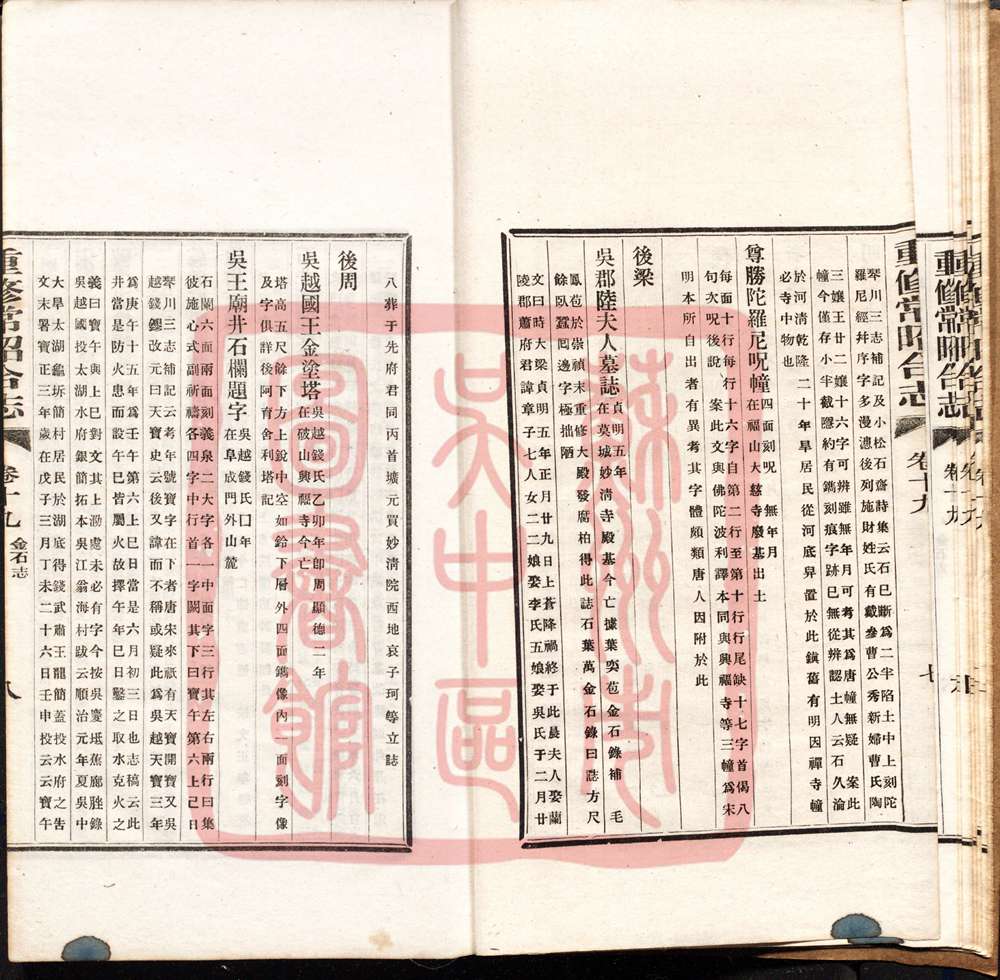 重修常昭合志
卷十九
七
琴川三志補記及小松石齋詩集云石已斷爲二半陷土中上刻陀
羅尼經幷序字多漫漶後列施財姓氏有戴參曹公秀新婦曹氏陶
三孃王廿二孃十六字可辨雖無年月可考其爲唐幢無疑　案此
幢今僅存小半截隱約有鐫刻痕字跡已無從辨認土人云石久淪
於河淸乾隆二十年旱居民從河底舁置於此鎭舊有明因禪寺幢
必寺中物也
尊勝陀羅尼呪幢四面刻呪　無年月
在福山大慈寺廢基出土
每面十行每行十六字自第二行至第十行行尾缺十七字首偈八
句次呪後說　案此文與佛陀波利譯本同與興福寺等三幢爲宋
明本所自出者有異考其字體頗類唐人因附於此
後梁
吳郡陸夫人墓誌貞明五年
在莫城妙淸寺殿基今亡據葉奕苞金石錄補　毛
鳳苞於崇禎末重修大殿發腐柏得此誌石葉萬金石錄曰誌方尺
餘臥蠶囘邊字極拙陋
文曰時大梁貞明五年正月廿九日上蒼降禍終於此晨夫人娶蘭
陵郡蕭府君諱章子七人女二二娘娶李氏五娘娶吳氏于二月廿
八葬于先府君同丙首壙元買妙淸院西地哀子珂等立誌
後周
吳越國王金塗塔吳越錢氏乙卯年卽周顯德二年
在破山興福寺今亡
塔高五尺餘下方上銳中空如鈴下層外四面鐫像內一面刻字像
及字俱詳後阿育舍利塔記
吳王廟井石欄題字吳越錢氏囗年
在阜成門外山麓
石闌六面兩面刻義泉二大字各一中面字三行其左右兩行曰集
彼施心式副祈禱各四字中行首一字闕其下曰寶午第六上己日
琴川三志補記云考年號寶字在下者唐宋來祇有天寶開寶又吳
越錢鏐改元曰天寶史云後又諱而不稱或疑此爲吳越天寶三年
爲庚午十五年爲壬午第六上巳日當是六月初三日也志稿云此
井當是防火患而設午巳皆屬火故擇午年巳日鑿之取水克火之
義曰寶午與上巳對文其上泐處未必有字今按吳慶坻蕉廊脞錄
吳越國投太湖水府銀簡拓本吳江翁海村跋云順治元年夏吳中
大旱太湖龜坼簡村居民於湖底得錢武肅王龍簡蓋投水府之告
文末署寶正三年歲在戊子三月丁未二十六日壬申投云云寶午
重修常昭合志
卷十九
金石志
八
蘇州市
吳中區
圖書館